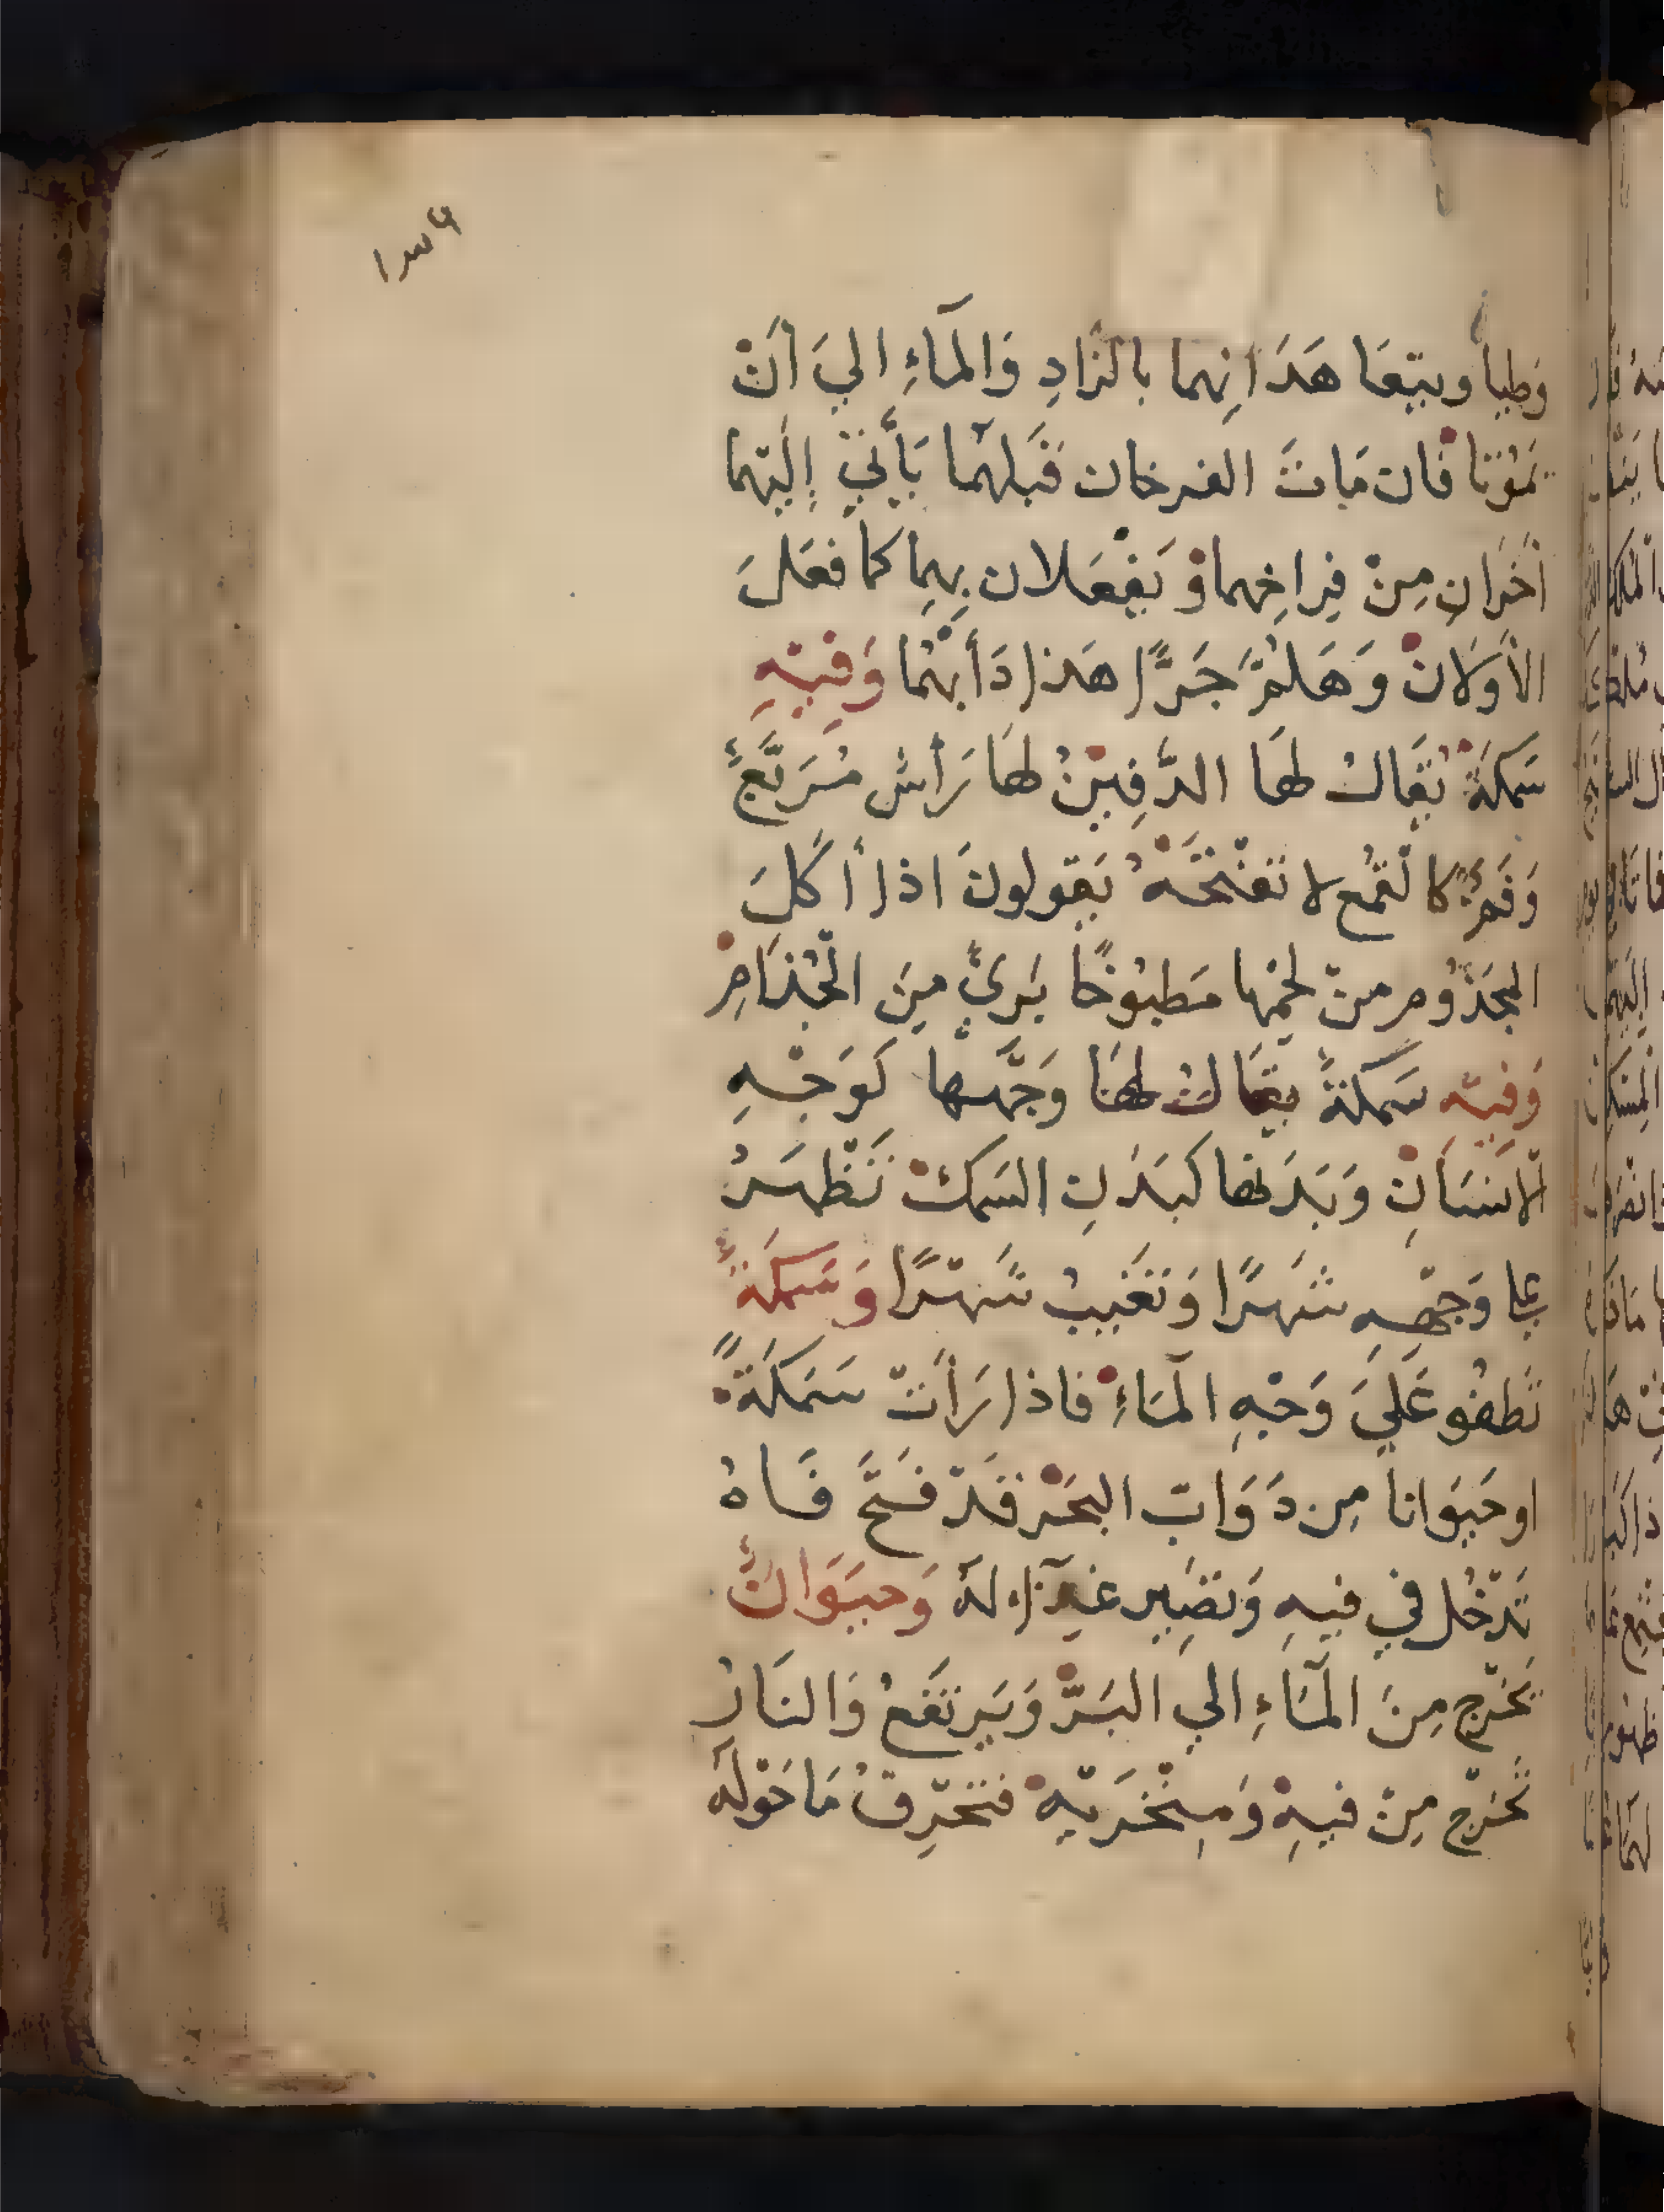 وَطيا ويتعَاهَدَانِهما بالزَادِ وَالمآءِ اليَ أنْ
يَمُوْتَا فَان مَاتَ الفرخان قَبلهُما يَأتيَ إليْهما
أخَرَانِ مِنْ فِراخِهما وَ يَفْعَلان بِهِما كما فعَلَ
الأوَلانْ وَهَلمَّ جَرًّا هَذا دَأبهُما وَفيْهِ
سَمكةٌ يُقَالُ لهَا الدَّفِيْنُ لها رَأسٌ مُرَبَّعٌ
وَفَمٌ كالقُمع لا تَفْتَحَهُ يَقولونَ اذا أكَلَ
المجَذُوم منْ لحْمِها مَطبُوخًا يَرئُ مِنَ الْجُذَامِ
وَفيْهِ سَمكةٌ يقَالُ لهَا وَجْهها كوَجْهِ
الانسَانِ وَبَدَنها كبَدَنِ السَمكْ تَظْهَرُ
علي وَجْههِ شَهرًا وَتَغَيبُ شَهْرًا وَسَمكةٌ
تَطفُو عَليَ وَجْهِ المآءِ فاذا رَأتْ سَمَكَةً
او حَيَوَانا مِن دَوَابّ البَحْر قَدْ فَتَحَ فَاهُ
تَدْخُل في فيهِ وَتصِير غِذآءً لهُ وَحيَوَانٌ
يَخْرج مِنَ المآءِ الي البَرّ وَيَرتَفعُ وَالنَارُ
تَخرج مِنْ فيهِ وَمنْخَريْهِ فتحْرِقُ مَاحَوْلَه